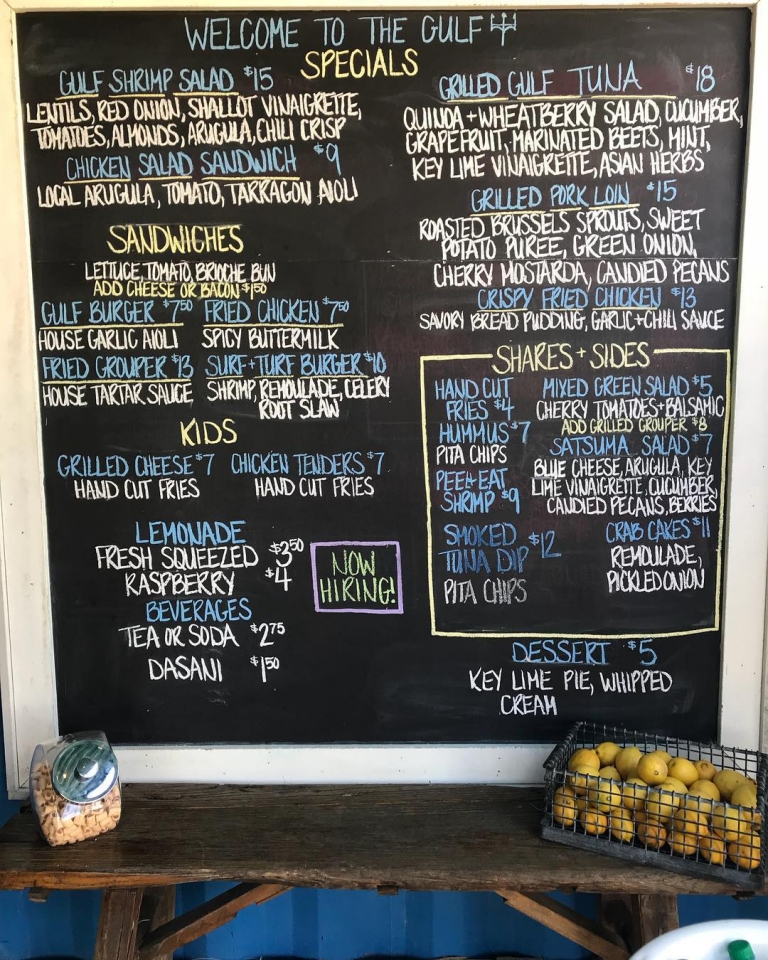 WELCOME TO THE GULF
SPECIALS
GULF SHRIMP SALAD $15
LENTILS, RED ONION, SHALLOT VINAIGRETTE,
TOMATOES, ALMONDS, ARUGULA, CHILI CRISP
CHICKEN SALAD SANDWICH $9
LOCAL ARUGULA, TOMATO, TARRAGON AIOLI
SANDWICHES
LETTUCE, TOMATO, BRIOCHE BUN
ADD CHEESE OR BACON $1.50
GULF BURGER $7.50 FRIED CHICKEN $7.50
HOUSE GARLIC AIOLI SPICY BUTTERMILK
FRIED GROUPER $13 SURF+TURF BURGER $10
HOUSE TARTAR SAUCE SHRIMP, REMOULADE, CELERY
ROOT SLAW
KIDS
GRILLED CHEESE $7 CHICKEN TENDERS $7
HAND CUT FRIES HAND CUT FRIES
LEMONADE
FRESH SQUEEZED $3.50
RASPBERRY $4
BEVERAGES
TEA OR SODA $2.75
DASANI $1.50
NOW
HIRING!
GRILLED GULF TUNA $18
QUINOA+WHEATBERRY SALAD, CUCUMBER,
GRAPEFRUIT, MARINATED BEETS, MINT,
KEY LIME VINAIGRETTE, ASIAN HERBS
GRILLED PORK LOIN $15
ROASTED BRUSSELS SPROUTS, SWEET
POTATO PUREE, GREEN ONION,
CHERRY MOSTARDA, CANDIED PECANS
CRISPY FRIED CHICKEN $13
SAVORY BREAD PUDDING, GARLIC+CHILI SAUCE
SHARES + SIDES
HAND CUT
FRIES $4
HUMMUS $7
PITA CHIPS
PEEL+EAT
SHRIMP $9
SMOKED
TUNA DIP $12
PITA CHIPS
MIXED GREEN SALAD $5
CHERRY TOMATOES+BALSAMIC
ADD GRILLED GROUPER $8
SATSUMA SALAD $7
BLUE CHEESE, ARUGULA, KEY
LIME VINAIGRETTE, CUCUMBER,
CANDIED PECANS, BERRIES
CRAB CAKES $11
REMOULADE,
PICKLED ONION
DESSERT $5
KEY LIME PIE, WHIPPED
CREAM